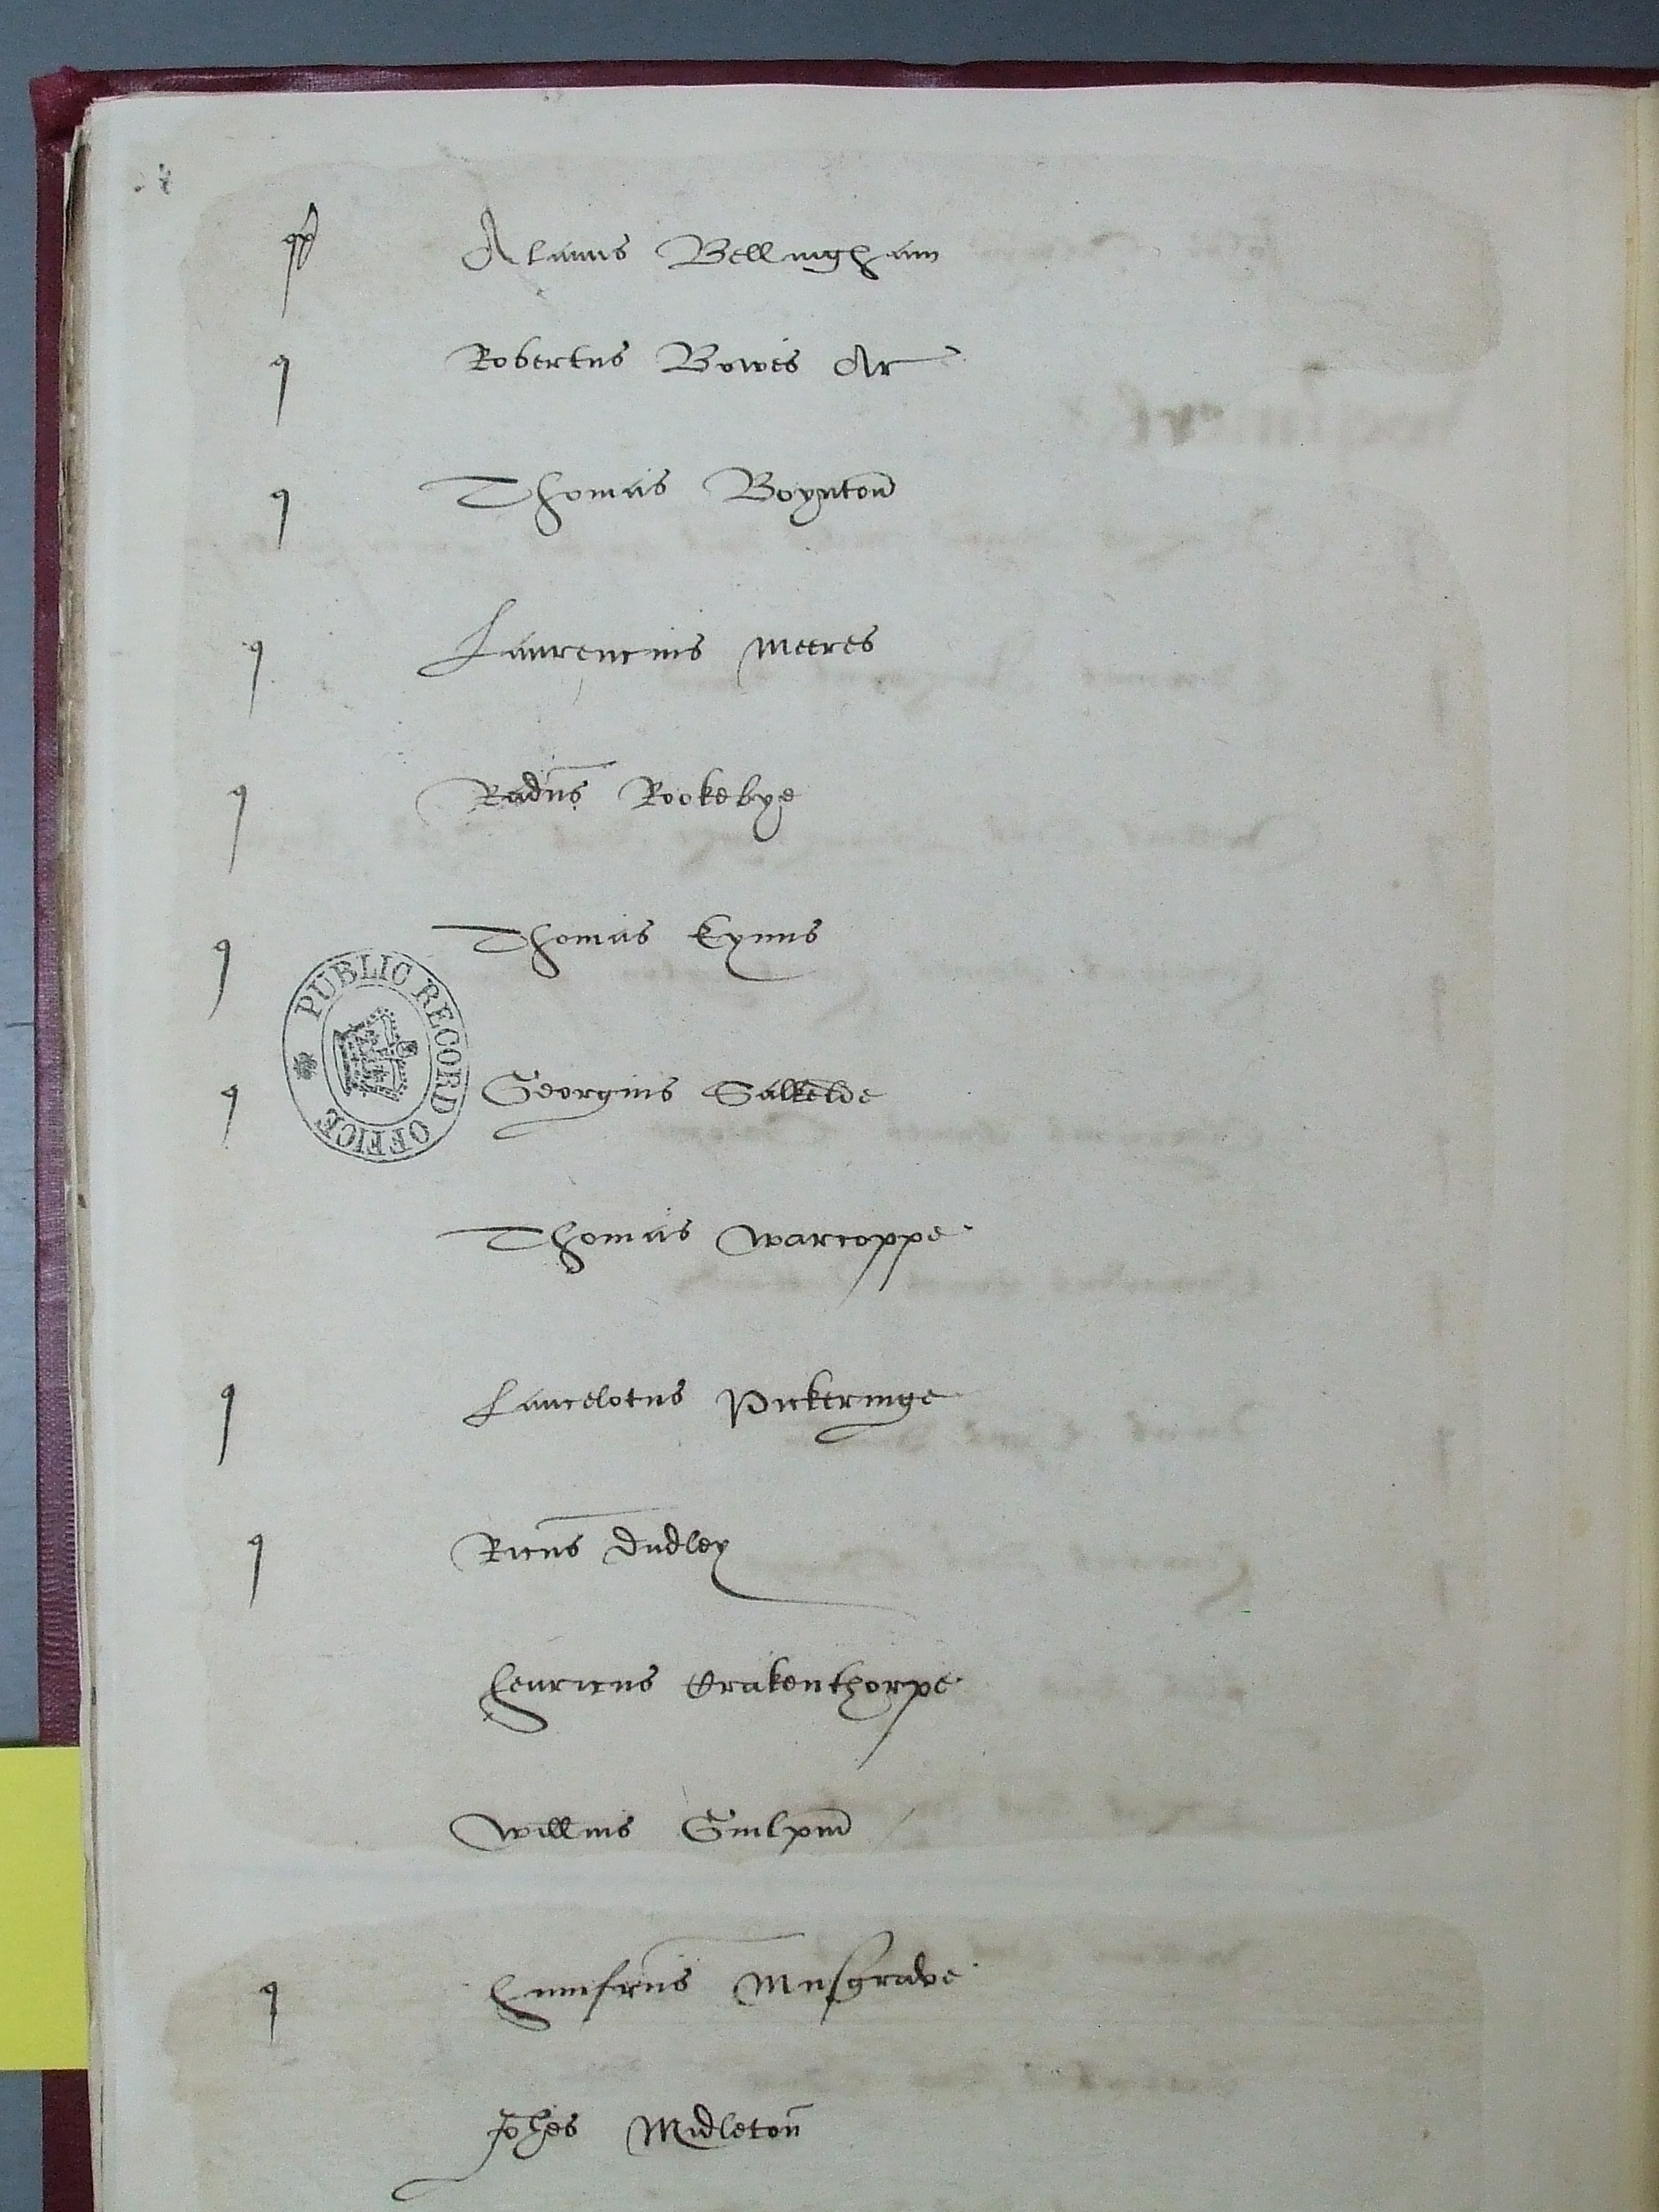 qq Alanus Bellingham
q Robertus Bowes Ar
q Thomas Boynton
q Laurencius Meeres
q Radus Rookebye
q Thomas Eynns
PUBLIC RECORD OFFICE
q Georgius Salkelde
Thomas Warcoppe
q Lancelotus Pickeringe
q Ricus Dudley
Henricus Crakenthorpe
Willms
q Humfrus Musgrave
Johes Midleton